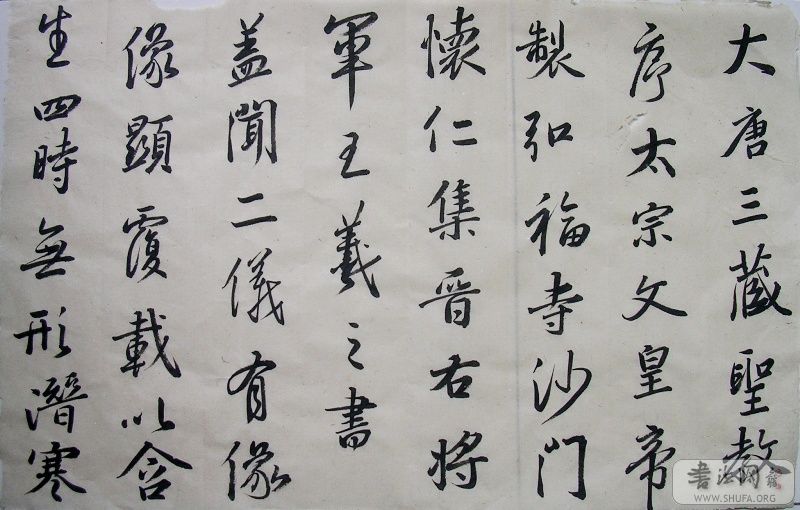 大唐三藏聖教
序太宗文皇帝
製弘福寺沙門
懷仁集晉右將
軍王羲之書
蓋聞二儀有像
像顯覆載以含
生四時無形潛寒
書法网
WWW.SHUFA.ORG